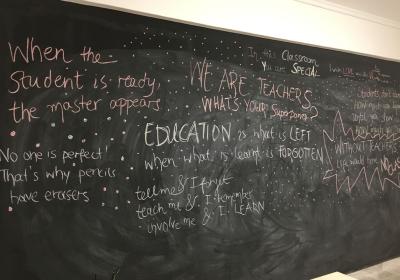 When the
Student is ready,
the master appears
No one is perfect
That's why pencils
have erasers
In this Classroom
You are SPECIAL
WE ARE TEACHERS
WHAT'S YOUR Superpower?
EDUCATION is what is LEFT
when what is learnt is FORGOTTEN
tell me & I forget
teach me & I remember
involve me & I LEARN
Students don't
how much you know
until you
WITHOUT TEACHERS
Life would have NO